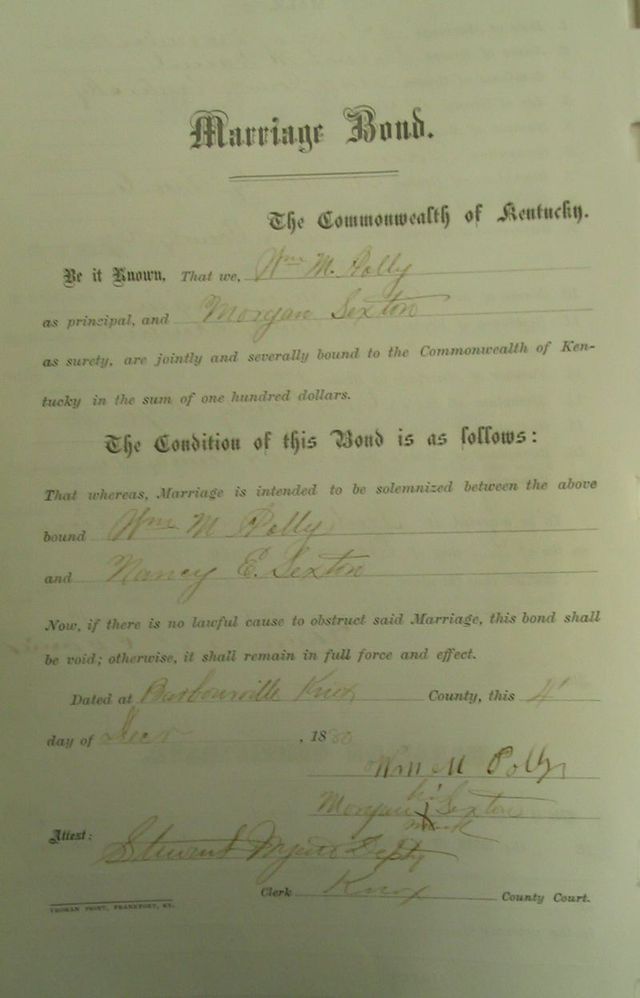 Marriage Bond.
The Commonwealth of Kentucky.
Be it Known, That we, Wm M. Polly
as principal, and Morgan Sexton
as surety, are jointly and severally bound to the Commonwealth of Ken-
tucky in the sum of one hundred dollars.
The Condition of this Bond is as follows:
That whereas, Marriage is intended to be solemnized between the above
bound Wm M Polly
and Nancy E. Sexton
Now, if there is no lawful cause to obstruct said Marriage, this bond shall
be void; otherwise, it shall remain in full force and effect.
Dated at Barbourville Knox County, this 4
day of Decr, 1880
Wm M Polly
his
Morgan X Sexton
mark
Attest:
Depty
Clerk Knox County Court.
YEOMAN PRINT, FRANKFORT, KY.